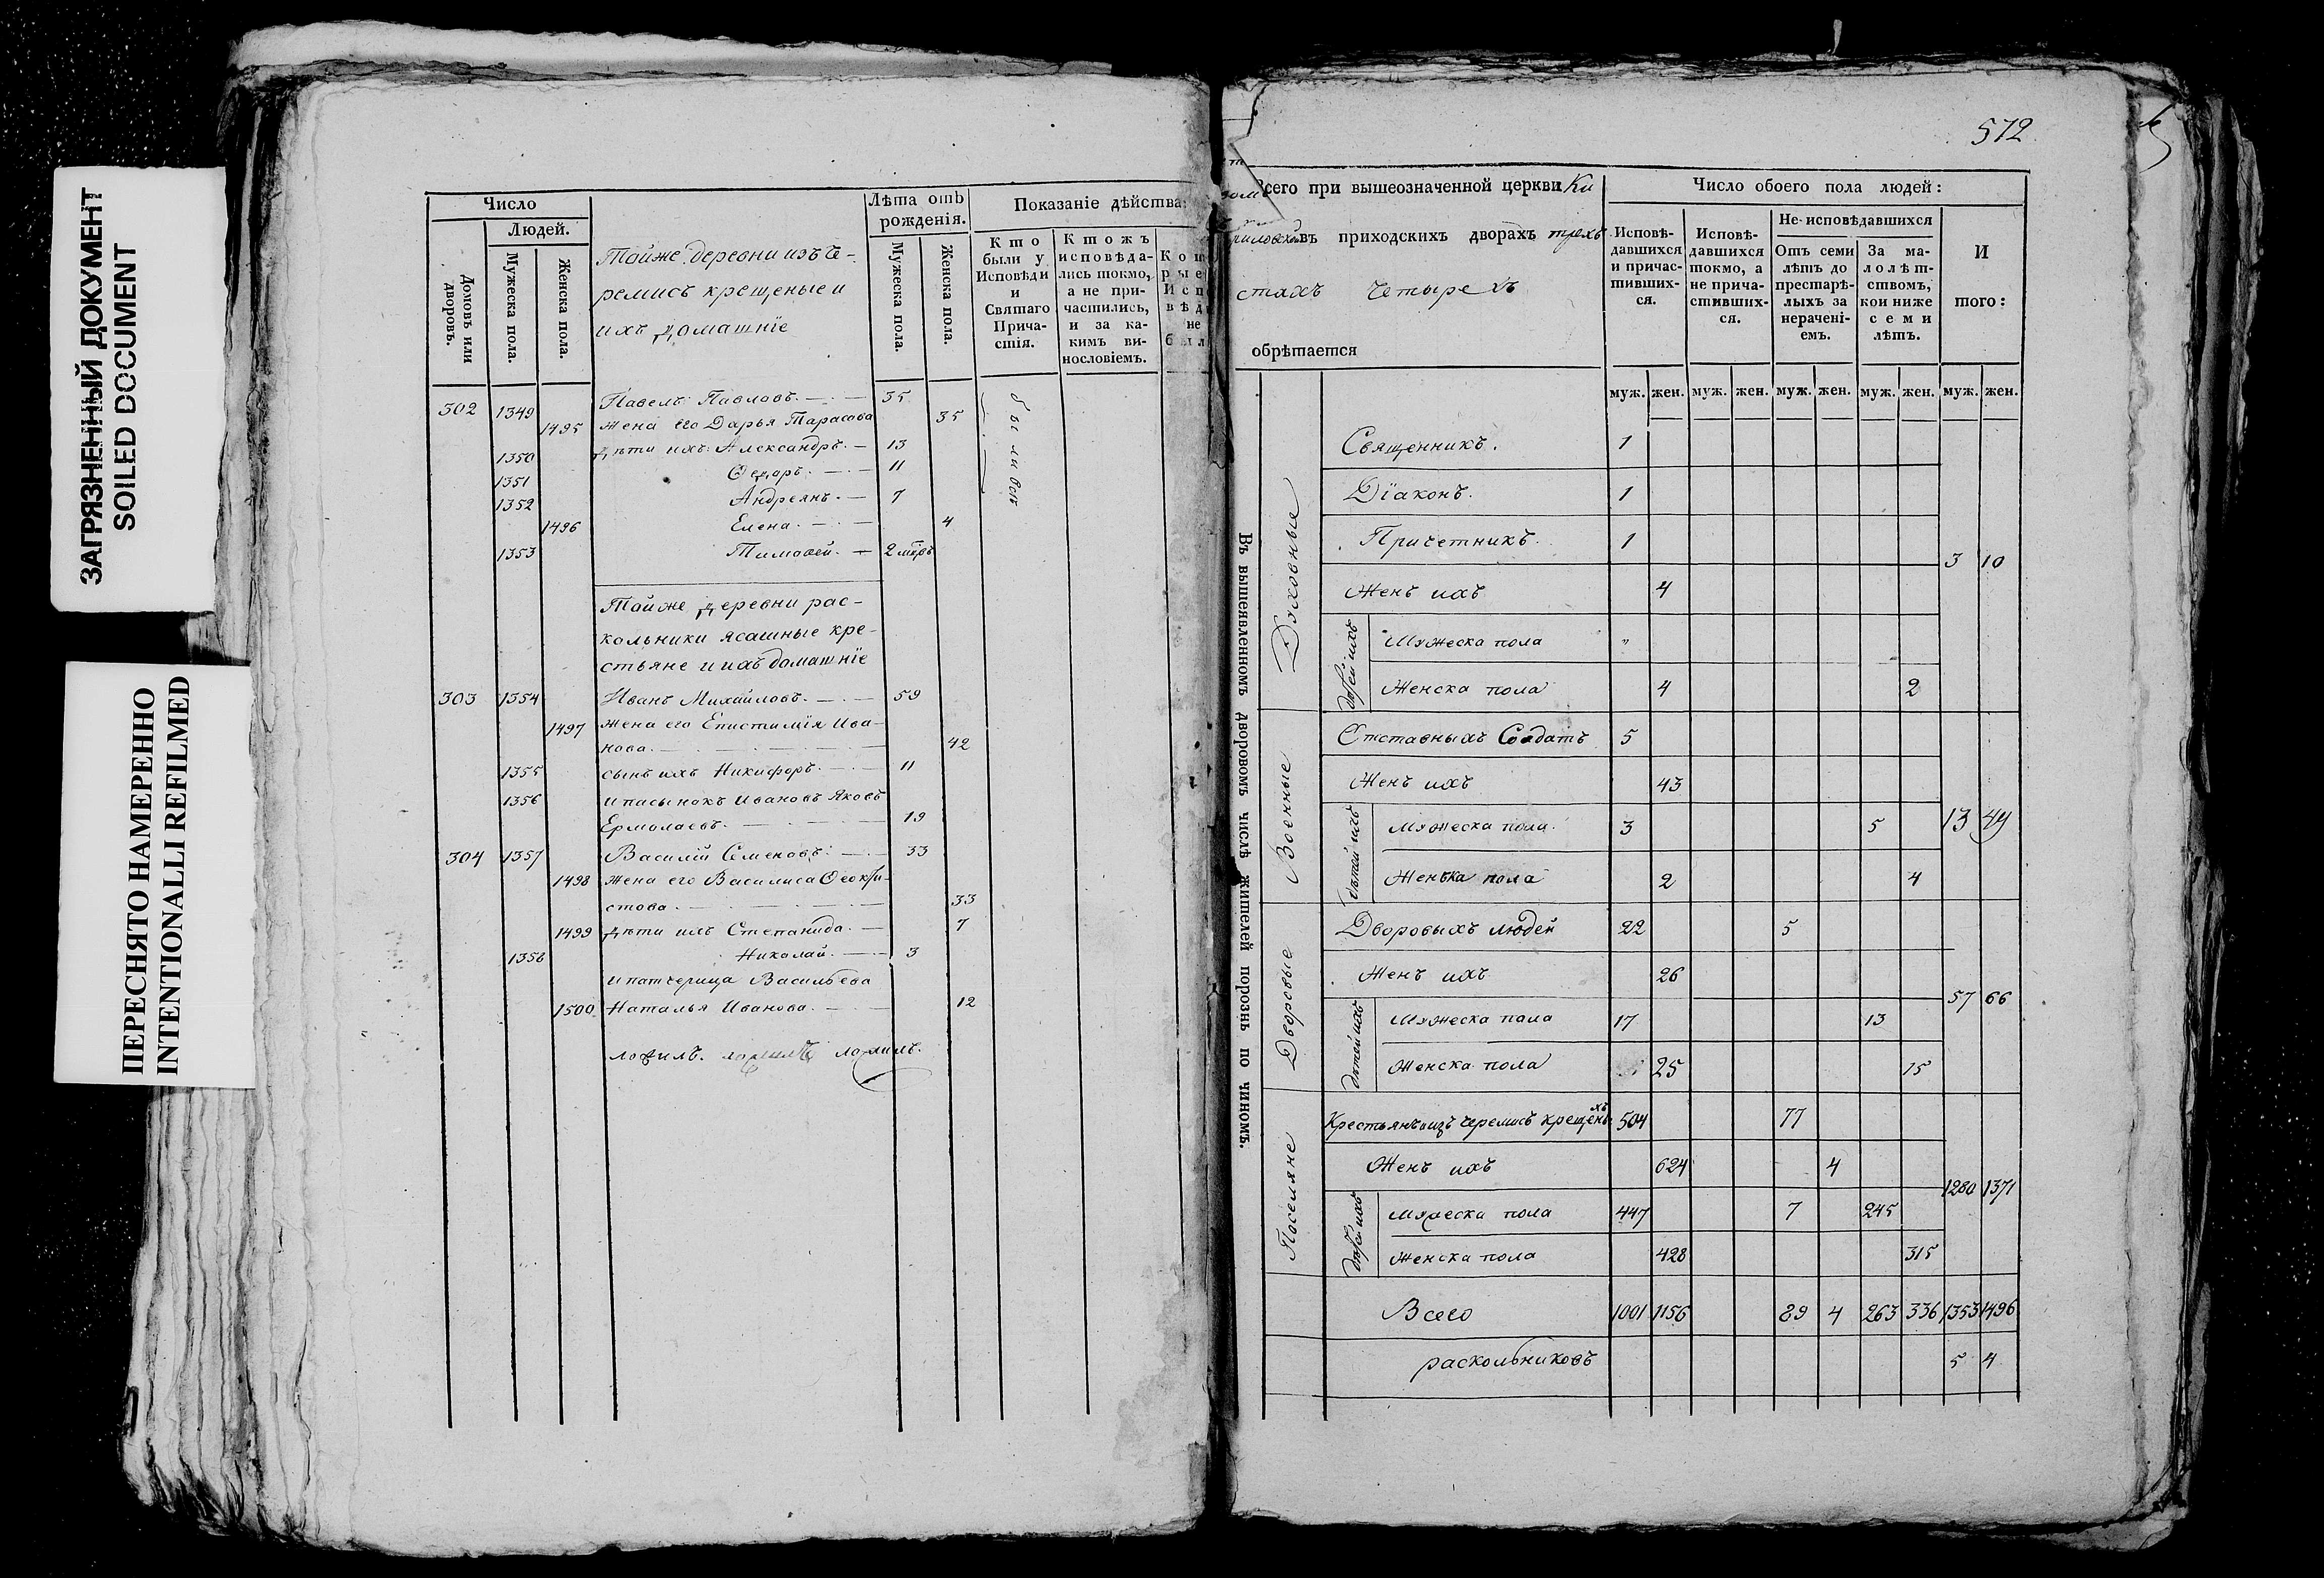 ЗАГРЯЗНЕННЫЙ ДОКУМЕНТ
SOILED DOCUMENT
ПЕРЕСНЯТО НАМЕРЕННО
INTENTIONALLI REFILMED
Число
Людей.
Домовъ или дворовъ.
Мужеска пола.
Женска пола.
Тойже деревни изъ че-
ремисъ крещеные и
ихъ домашнiе
Лѣта отъ
рожденія.
Мужеска пола.
Женска пола.
Показаніе дѣйства:
Кто
были у
Исповѣди
и
Святаго
Прича-
стія.
Ктожъ
исповѣда-
лись токмо,
а не при-
частились,
и за ка-
кимъ ви-
нословіемъ.
302 1349 Павелъ Павловъ. — 35
1495 жена его Дарья Тарасова 35
1350 дѣти ихъ: Александръ. — 13
1351 Ѳедоръ. — 11
1352 Андреянъ. — 7
1496 Елена. — 4
1353 Тимоѳей. — 2
были всѣ
Тойже деревни рас-
кольники ясашные кре-
стьяне и ихъ домашнiе
303 1354 Иванъ Михайловъ. — 59
1497 жена его Епистимiя Ива-
нова. — 42
1355 сынъ ихъ Никифоръ. — 11
1356 и пасынокъ Ивановъ Яковъ
Ермолаевъ. — 19
304 1357 Василiй Семеновъ. — 33
1498 жена его Василиса Ѳеокти-
стова. — 33
1499 дѣти ихъ Степанида. — 7
1358 Николай. — 3
и патчерица Васильева
1500 Наталья Иванова. — 12
572
Всего при вышеозначенной церкви Ки
въ приходскихъ дворахъ трехъ
стахъ четырехъ
обрѣтается
Число обоего пола людей:
Исповѣ-
давшихся
и причас-
тивших-
ся.
Исповѣ-
давшихся
токмо, а
не прича-
стивших-
ся.
Не исповѣдавшихся
Отъ семи
лѣтъ до
престарѣ-
лыхъ за
нерачені-
емъ.
За ма-
лолѣт-
ствомъ,
кои ниже
семи
лѣтъ.
И
того:
муж. жен. муж. жен. муж. жен. муж. жен. муж. жен.
Въ вышеявленномъ дворовомъ числѣ жителей порознь по чиномъ.
Духовные
Священникъ. 1
Дiаконъ. 1
Причетникъ. 1
3 10
Женъ ихъ 4
дѣтей ихъ
Мужеска пола "
Женска пола 4 2
Военные
Отставныхъ Солдатъ 5
Женъ ихъ 43
дѣтей ихъ
Мужеска пола. 3 5
13 49
Женска пола 2 4
Дворовые
Дворовыхъ людей 22 5
Женъ ихъ 26
57 66
дѣтей ихъ
Мужеска пола 17 13
Женска пола 25 15
Поселяне
Крестьянъ и изъ черемисъ крещеныхъ 504 77
Женъ ихъ 624 4
1280 1371
дѣтей ихъ
Мужеска пола 447 7 245
Женска пола 428 315
Всего 1001 1156 89 4 263 336 1353 1496
раскольниковъ 5 4